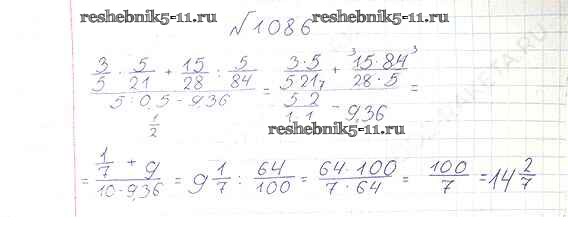 reshebnik5-11.ru reshebnik5-11.ru
№1086
3/5 · 5/21 + 15/28 : 5/84 / 5 : 0,5 - 9,36 = 3·5/5 21 7 + 3 15·84 3/28·5 / 5 2/1 1 - 9,36 =
1/2
reshebnik5-11.ru
= 1/7 + 9 / 10-9,36 = 9 1/7 : 64/100 = 64·100/7·64 = 100/7 = 14 2/7
reshebnik5-11.ru